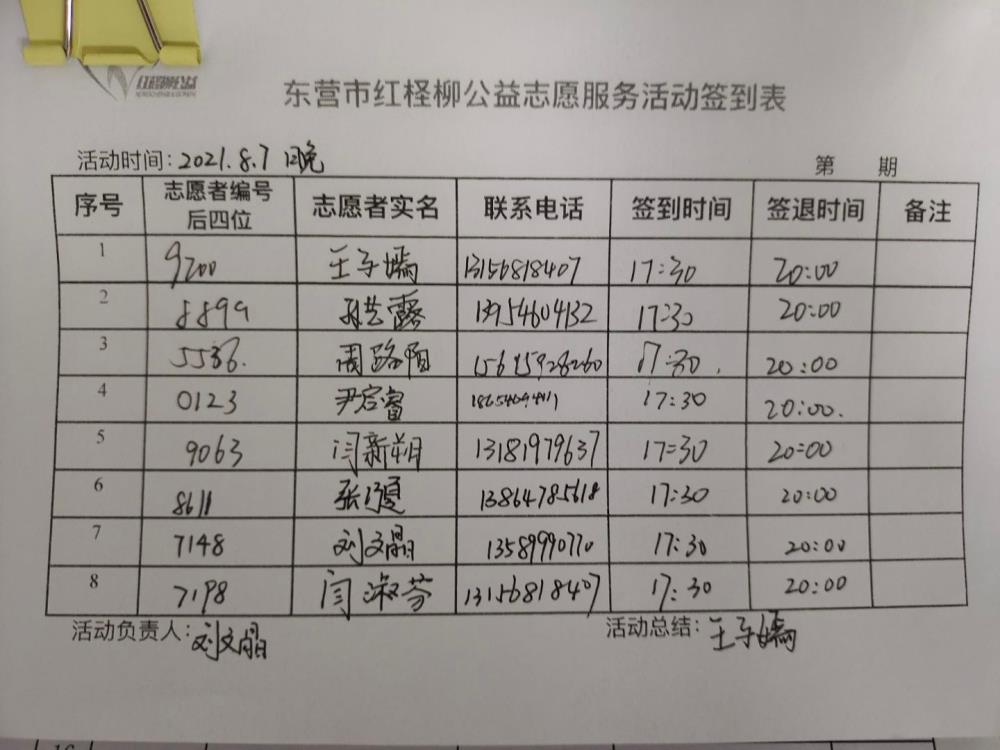 东营市红柽柳公益志愿服务活动签到表
活动时间: 2021.8.7 晚 第 期
序号 志愿者编号后四位 志愿者实名 联系电话 签到时间 签退时间 备注
1 9200 王子嫣 13156818407 17:30 20:00
2 8899 13954604132 17:30 20:00
3 5536. 周路阳 15615928260 17:30. 20:00
4 0123 尹启睿 17:30 20:00.
5 9063 闫新朔 13181979637 17:30 20:00
6 8611 13864785618 17:30 20:00
7 7148 刘文晶 13589990770 17:30 20:00
8 7198 闫淑芬 13156818407 17:30 20:00
活动负责人: 刘文晶 活动总结: 王子嫣